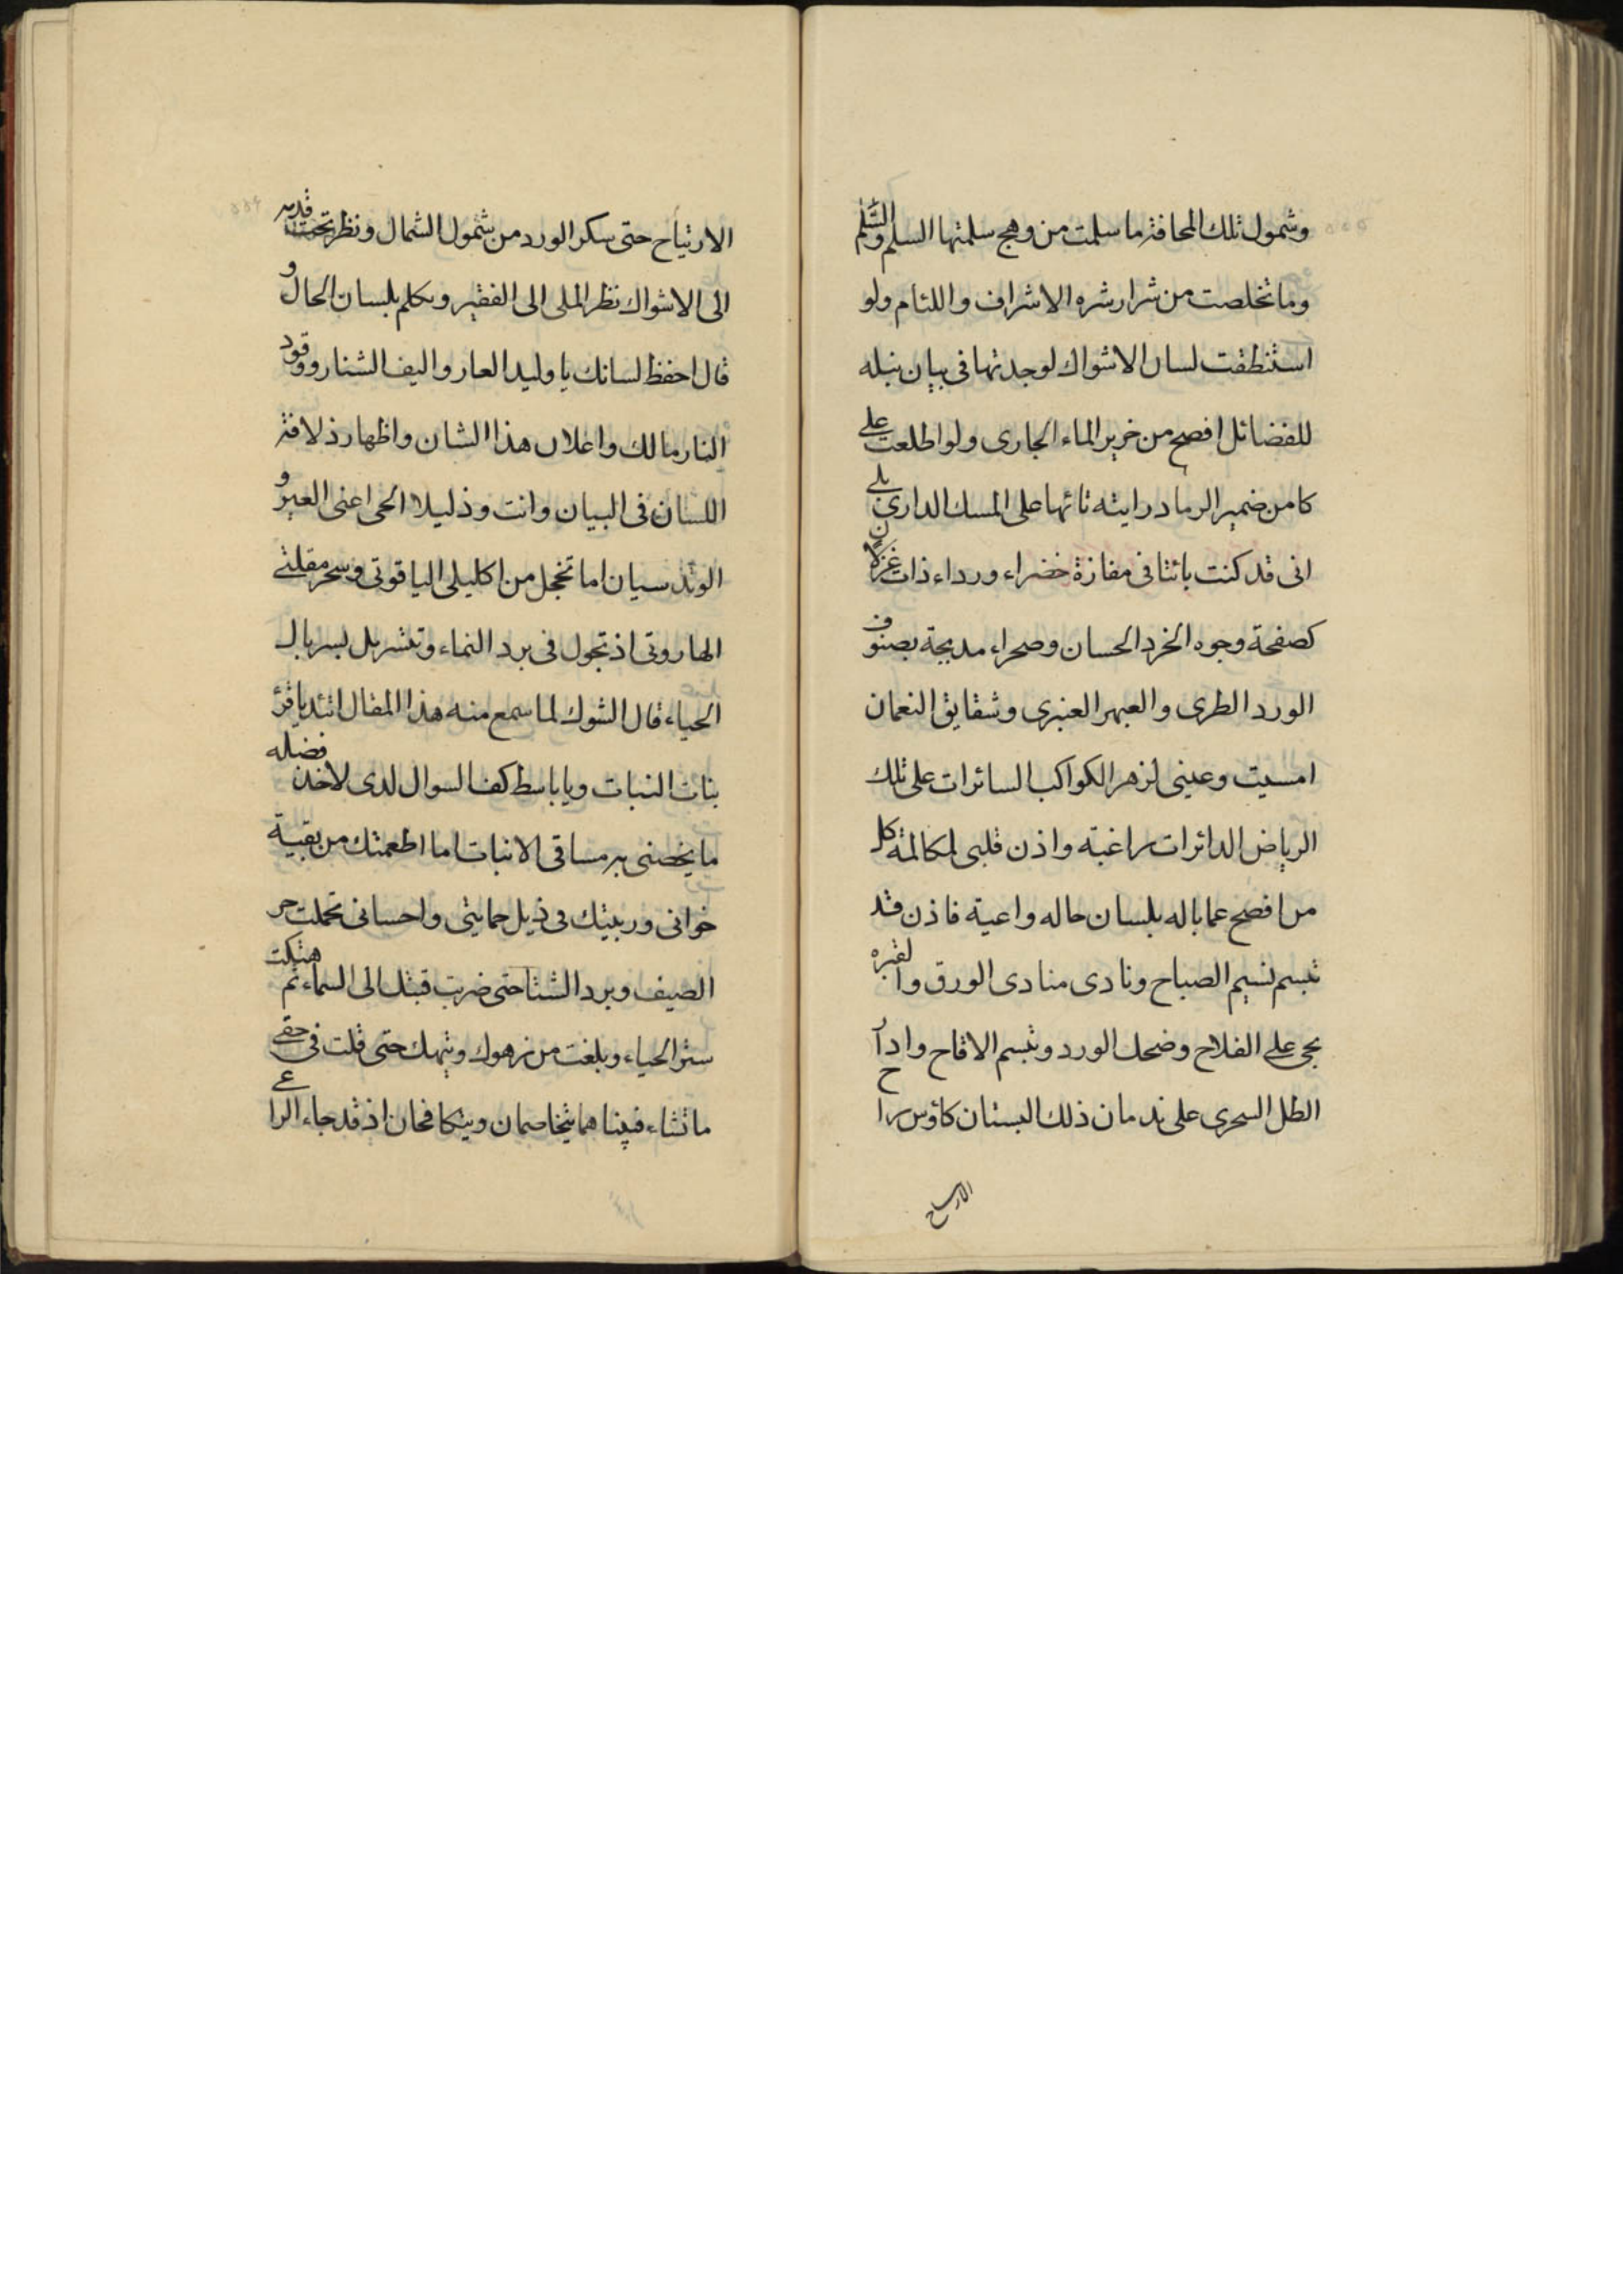 وشمول تلك المخافة ما سلمت من وهج سلمتها السلم والسَّلم
وما تخلصت من شرار شره الاشراف واللئام ولو
استنطقت لسان الاشواك لوجدتها فى بيان نبله
للفضائل افصح من خرير الماء الجارى ولو اطلعت على
كامن ضمير الرماد رايته تائها على المسك الدارى بلى
انى قد كنت بائتا فى مفازة خضراء ورداء ذات غزلان
كصفحة وجوه الخرد الحسان وصحراء مدبجة بصنوف
الورد الطرى والعبهر العنبرى وشقايق النعمان
امسيت وعينى لزهر الكواكب السائرات على تلك
الرياض الدائرات راغبة واذن قلبى لمكالمة كل
من افصح عما باله بلسان حاله واعية فاذن قد
تبسم نسيم الصباح ونادى منادى الورق والقبره
بحى على الفلاح وضحك الورد وتبسم الاقاح وادار
الطل السحرى على ندمان ذلك البستان كاؤس راح
الارتياح
الارتياح حتى سكر الورد من شمول الشمال ونظر تحت قدمه
الى الاشواك نظر الملى الى الفقير وتكلم بلسان الحال و
قال احفظ لسانك يا وليد العار واليف الشنار ووقود
النار مالك واعلان هذا الشان واظهار ذلاقة
اللسان فى البيان وانت وذليلا الحى اعنى العير و
الوتد سيان اما تخجل من اكليلى الياقوتى وسحر مقلتى
الهاروتى اذ تجول فى برد النماء وتتسربل بسربال
الحياء قال الشوك لما سمع منه هذا المقال اتئد يا قرة
بنات النبات ويا باسط كف السوال لدى لاخذ فضله
ما يخصنى به مساقى الانبات اما اطعمتك من بقية
خوانى وربيتك فى ذيل حمايتى واحسانى تحملت حر
الصيف وبرد الشتا حتى ضربت قبتك الى السماء ثم هتكت
ستر الحياء وبلغت من زهوك وتيهك حتى قلت فى حقى
ما تشاء فبينا هما يتخاصمان ويتكافحان اذ قد جاء الراعى